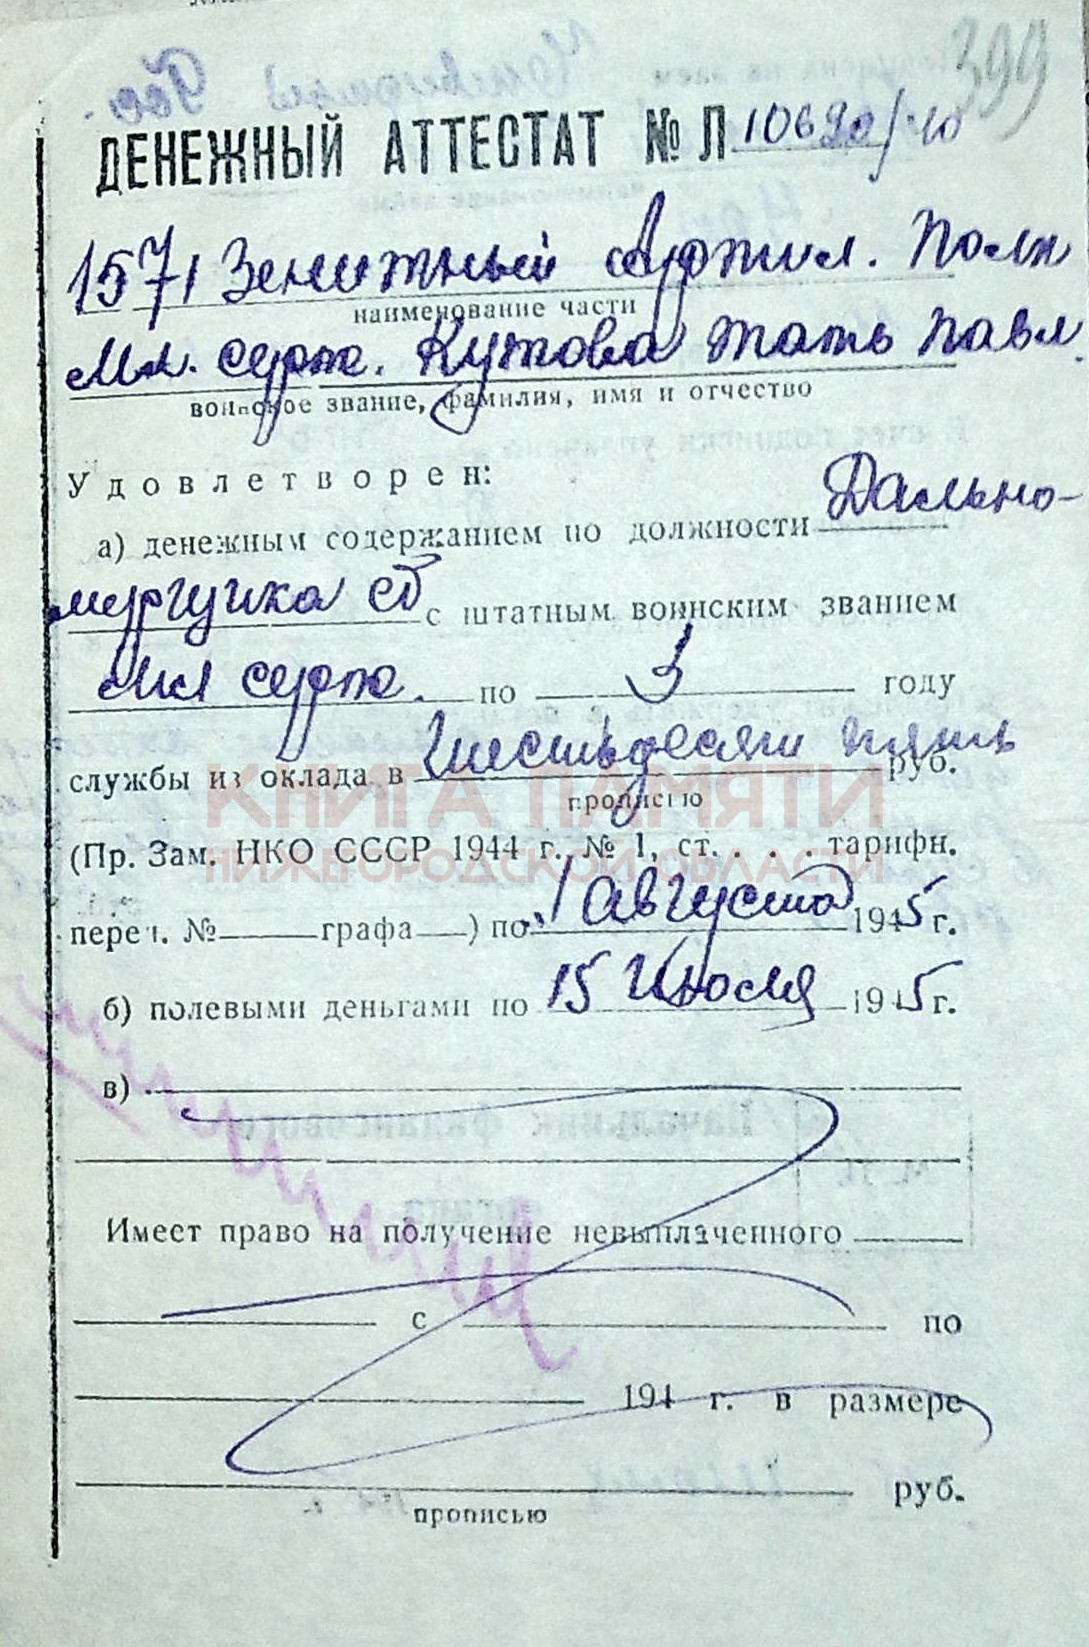 399
ДЕНЕЖНЫЙ АТТЕСТАТ № Л 10690/40
1571 Зенитный Артил. Полк
наименование части
Мл. серж. Кутова Тать Павл.
воинское звание, фамилия, имя и отчество
Удовлетворен:
а) денежным содержанием по должности Дально-
мерщика с штатным воинским званием
Мл серж. по 3 году
службы из оклада в Шестьдесят пять руб.
прописью
КНИГА ПАМЯТИ
(Пр. Зам. НКО СССР 1944 г. № 1, ст. . . . тарифн.
НИЖЕГОРОДСКОЙ ОБЛАСТИ
переч. № графа ) по 1 Августа 1945 г.
б) полевыми деньгами по 15 Июля 1945 г.
в)
Имеет право на получение невыплаченного
с по
194 г. в размере
руб.
прописью